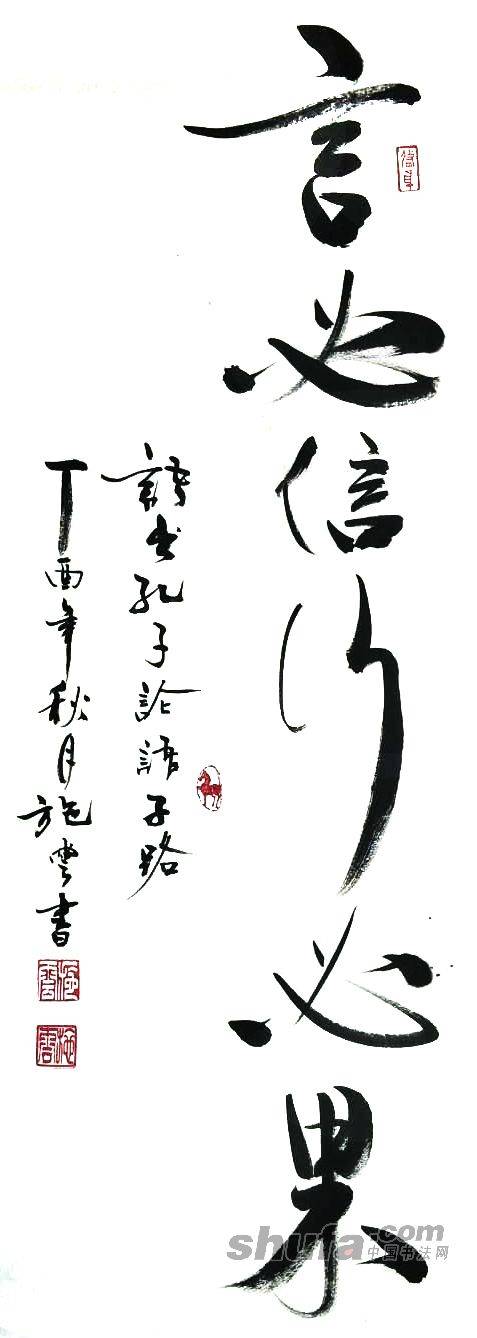 言必信行必果
語出孔子論語子路
丁酉年秋月施雲書
shufa.com
中国书法网